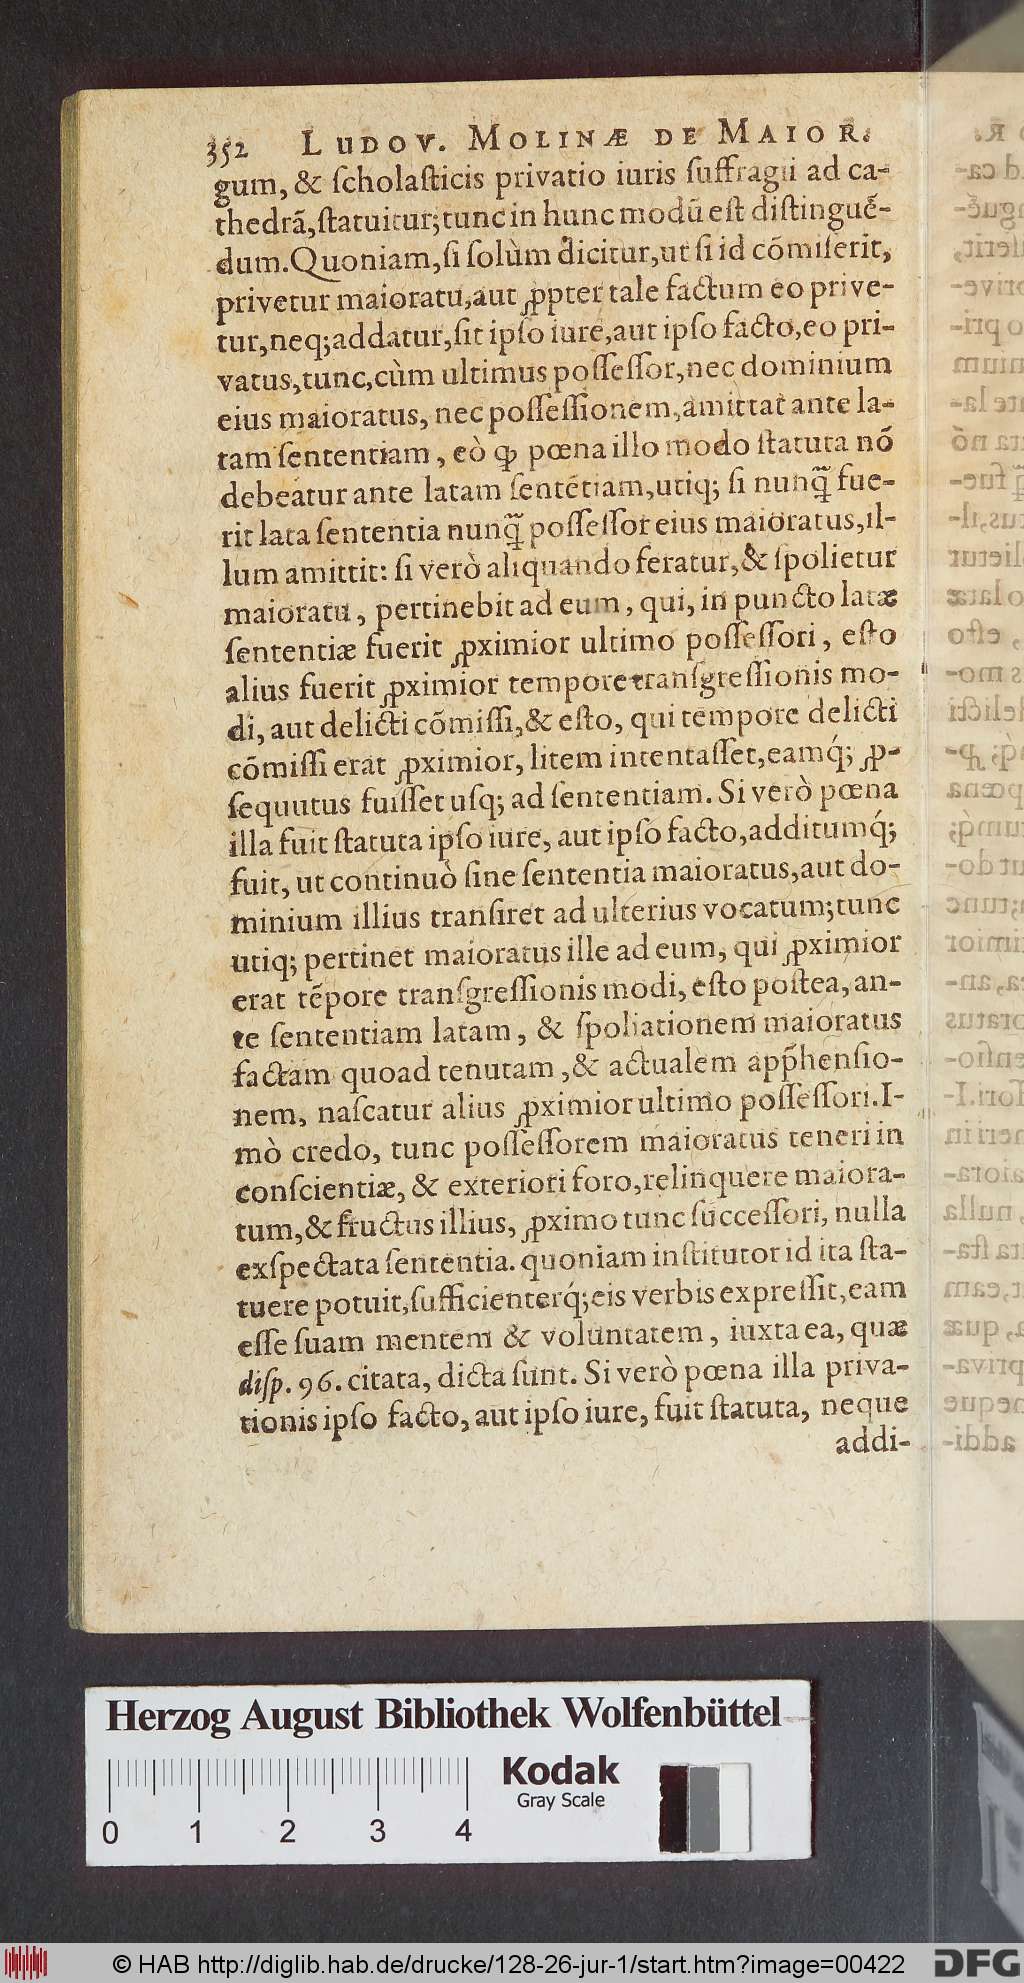 352 LUDOV. MOLINÆ DE MAIOR.
gum, & ſcholaſticis privatio iuris ſuffragii ad ca-
thedrã, ſtatuitur; tunc in hunc modũ eſt diſtinguẽ-
dum. Quoniam, ſi ſolùm dicitur, ut ſi id cõmiſerit,
privetur maioratu, aut ꝓpter tale factum eo prive-
tur, neq; addatur, ſit ipſo iure, aut ipſo facto, eo pri-
vatus, tunc, cùm ultimus poſſeſſor, nec dominium
eius maioratus, nec poſſeſſionem, amittat ante la-
tam ſententiam, eò ꝙ pœna illo modo ſtatuta nõ
debeatur ante latam ſentẽtiam, utiq; ſi nunq̃ fue-
rit lata ſententia nunq̃ poſſeſſor eius maioratus, il-
lum amittit: ſi verò aliquando feratur, & ſpolietur
maioratu, pertinebit ad eum, qui, in puncto latæ
ſententiæ fuerit ꝓximior ultimo poſſeſſori, eſto
alius fuerit ꝓximior tempore tranſgreſſionis mo-
di, aut delicti cõmiſſi, & eſto, qui tempore delicti
cõmiſſi erat ꝓximior, litem intentaſſet, eamq́; ꝓ-
ſequutus fuiſſet uſq; ad ſententiam. Si verò pœna
illa fuit ſtatuta ipſo iure, aut ipſo facto, additumq́;
fuit, ut continuò ſine ſententia maioratus, aut do-
minium illius tranſiret ad ulterius vocatum; tunc
utiq; pertinet maioratus ille ad eum, qui ꝓximior
erat tẽpore tranſgreſſionis modi, eſto poſtea, an-
te ſententiam latam, & ſpoliationem maioratus
factam quoad tenutam, & actualem app̃henſio-
nem, naſcatur alius ꝓximior ultimo poſſeſſori. I-
mò credo, tunc poſſeſſorem maioratus teneri in
conſcientiæ, & exteriori foro, relinquere maiora-
tum, & fructus illius, ꝓximo tunc ſucceſſori, nulla
exſpectata ſententia. quoniam inſtitutor id ita ſta-
tuere potuit, ſufficienterq́; eis verbis expreſſit, eam
eſſe ſuam mentem & voluntatem, iuxta ea, quæ
diſp. 96. citata, dicta ſunt. Si verò pœna illa priva-
tionis ipſo facto, aut ipſo iure, fuit ſtatuta, neque
addi-
Herzog August Bibliothek Wolfenbüttel
Kodak
Gray Scale
0 1 2 3 4
© HAB http://diglib.hab.de/drucke/128-26-jur-1/start.htm?image=00422
DFG